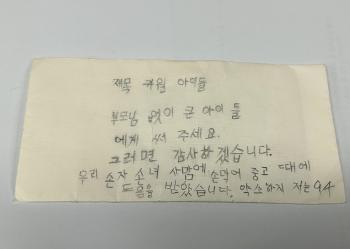 제목 아이들
부모님 없이 큰 아이 들
에게 써 주세요.
그러면 감사하겠습니다.
우리 손자 소녀 중고 때에
도움을 받았습니다. 약소하지 저는 94